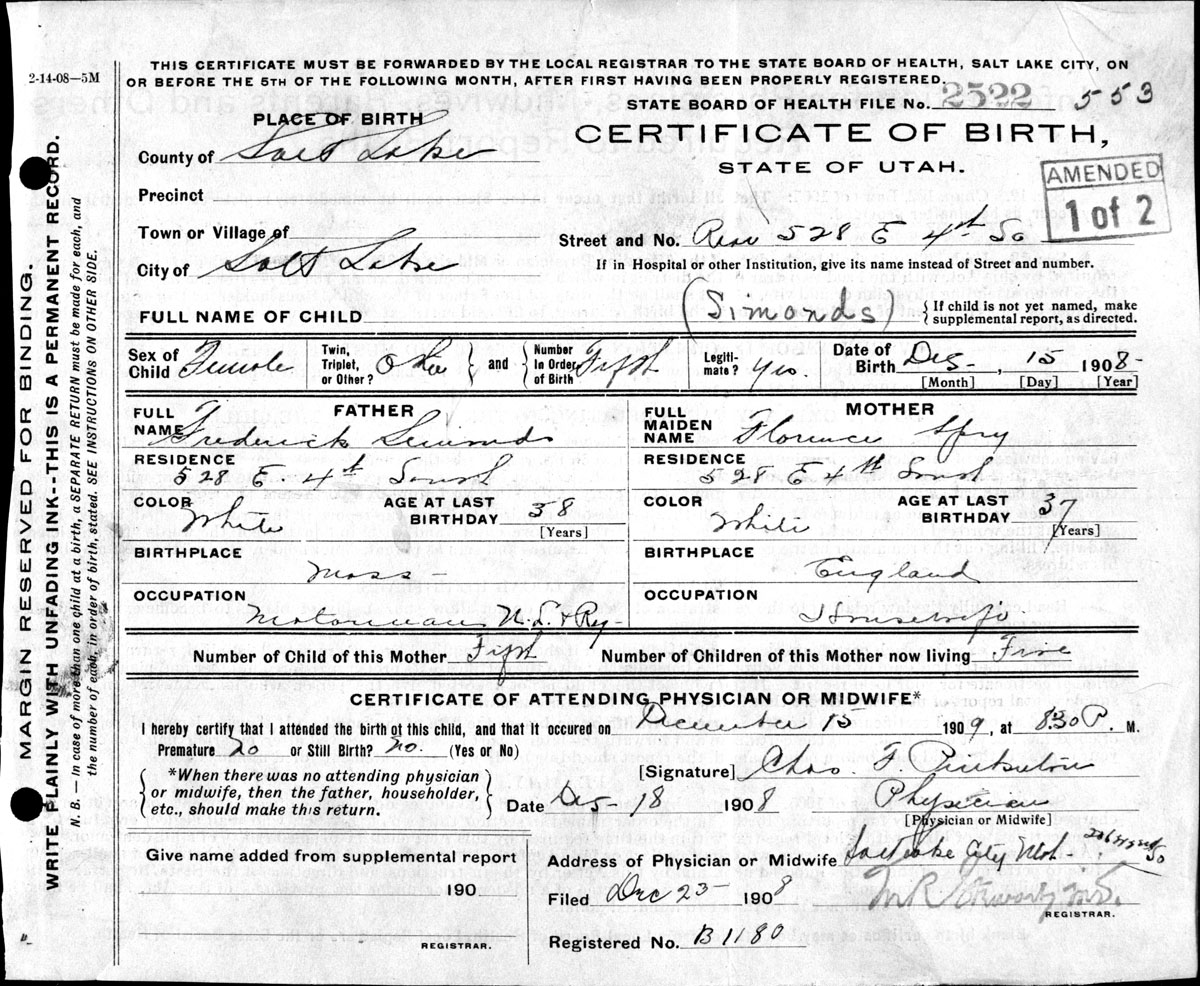 2-14-08—5M
THIS CERTIFICATE MUST BE FORWARDED BY THE LOCAL REGISTRAR TO THE STATE BOARD OF HEALTH, SALT LAKE CITY, ON
OR BEFORE THE 5TH OF THE FOLLOWING MONTH, AFTER FIRST HAVING BEEN PROPERLY REGISTERED.
STATE BOARD OF HEALTH FILE No. 2522 553
PLACE OF BIRTH
CERTIFICATE OF BIRTH,
STATE OF UTAH.
AMENDED
1 of 2
County of Salt Lake
Precinct
Town or Village of
Street and No. Rear 528 E 4th So
City of Salt Lake
If in Hospital or other Institution, give its name instead of Street and number.
FULL NAME OF CHILD (Simonds)
{If child is not yet named, make
supplemental report, as directed.
Sex of Child Female
Twin, Triplet, or Other? } and { Number In Order of Birth Fifth
Legiti-mate? Yes
Date of Birth Dec, 15 1908
[Month] [Day] [Year]
FATHER
FULL NAME Frederick Simonds
RESIDENCE 528 E 4th South
COLOR White
AGE AT LAST BIRTHDAY 38
[Years]
BIRTHPLACE Mass
OCCUPATION Motorman U. L. & Ry
MOTHER
FULL MAIDEN NAME Florence Spry
RESIDENCE 528 E 4th South
COLOR White
AGE AT LAST BIRTHDAY 37
[Years]
BIRTHPLACE England
OCCUPATION Housewife
Number of Child of this Mother Fifth Number of Children of this Mother now living Five
CERTIFICATE OF ATTENDING PHYSICIAN OR MIDWIFE*
I hereby certify that I attended the birth of this child, and that it occured on December 15 1909, at 8:30 P. M.
Premature? no or Still Birth? no. (Yes or No)
*When there was no attending physician
or midwife, then the father, householder,
etc., should make this return.
[Signature] Chas. F.
Date Dec 18 1908 Physician
[Physician or Midwife]
Give name added from supplemental report
190
REGISTRAR.
Address of Physician or Midwife Salt Lake City
Filed Dec 23 1908
M R Stewart M.D.
REGISTRAR.
Registered No. B1180
MARGIN RESERVED FOR BINDING.
WRITE PLAINLY WITH UNFADING INK--THIS IS A PERMANENT RECORD.
N. B. — In case of more than one child at a birth, a SEPARATE RETURN must be made for each, and
the number of each, in order of birth, stated. SEE INSTRUCTIONS ON OTHER SIDE.